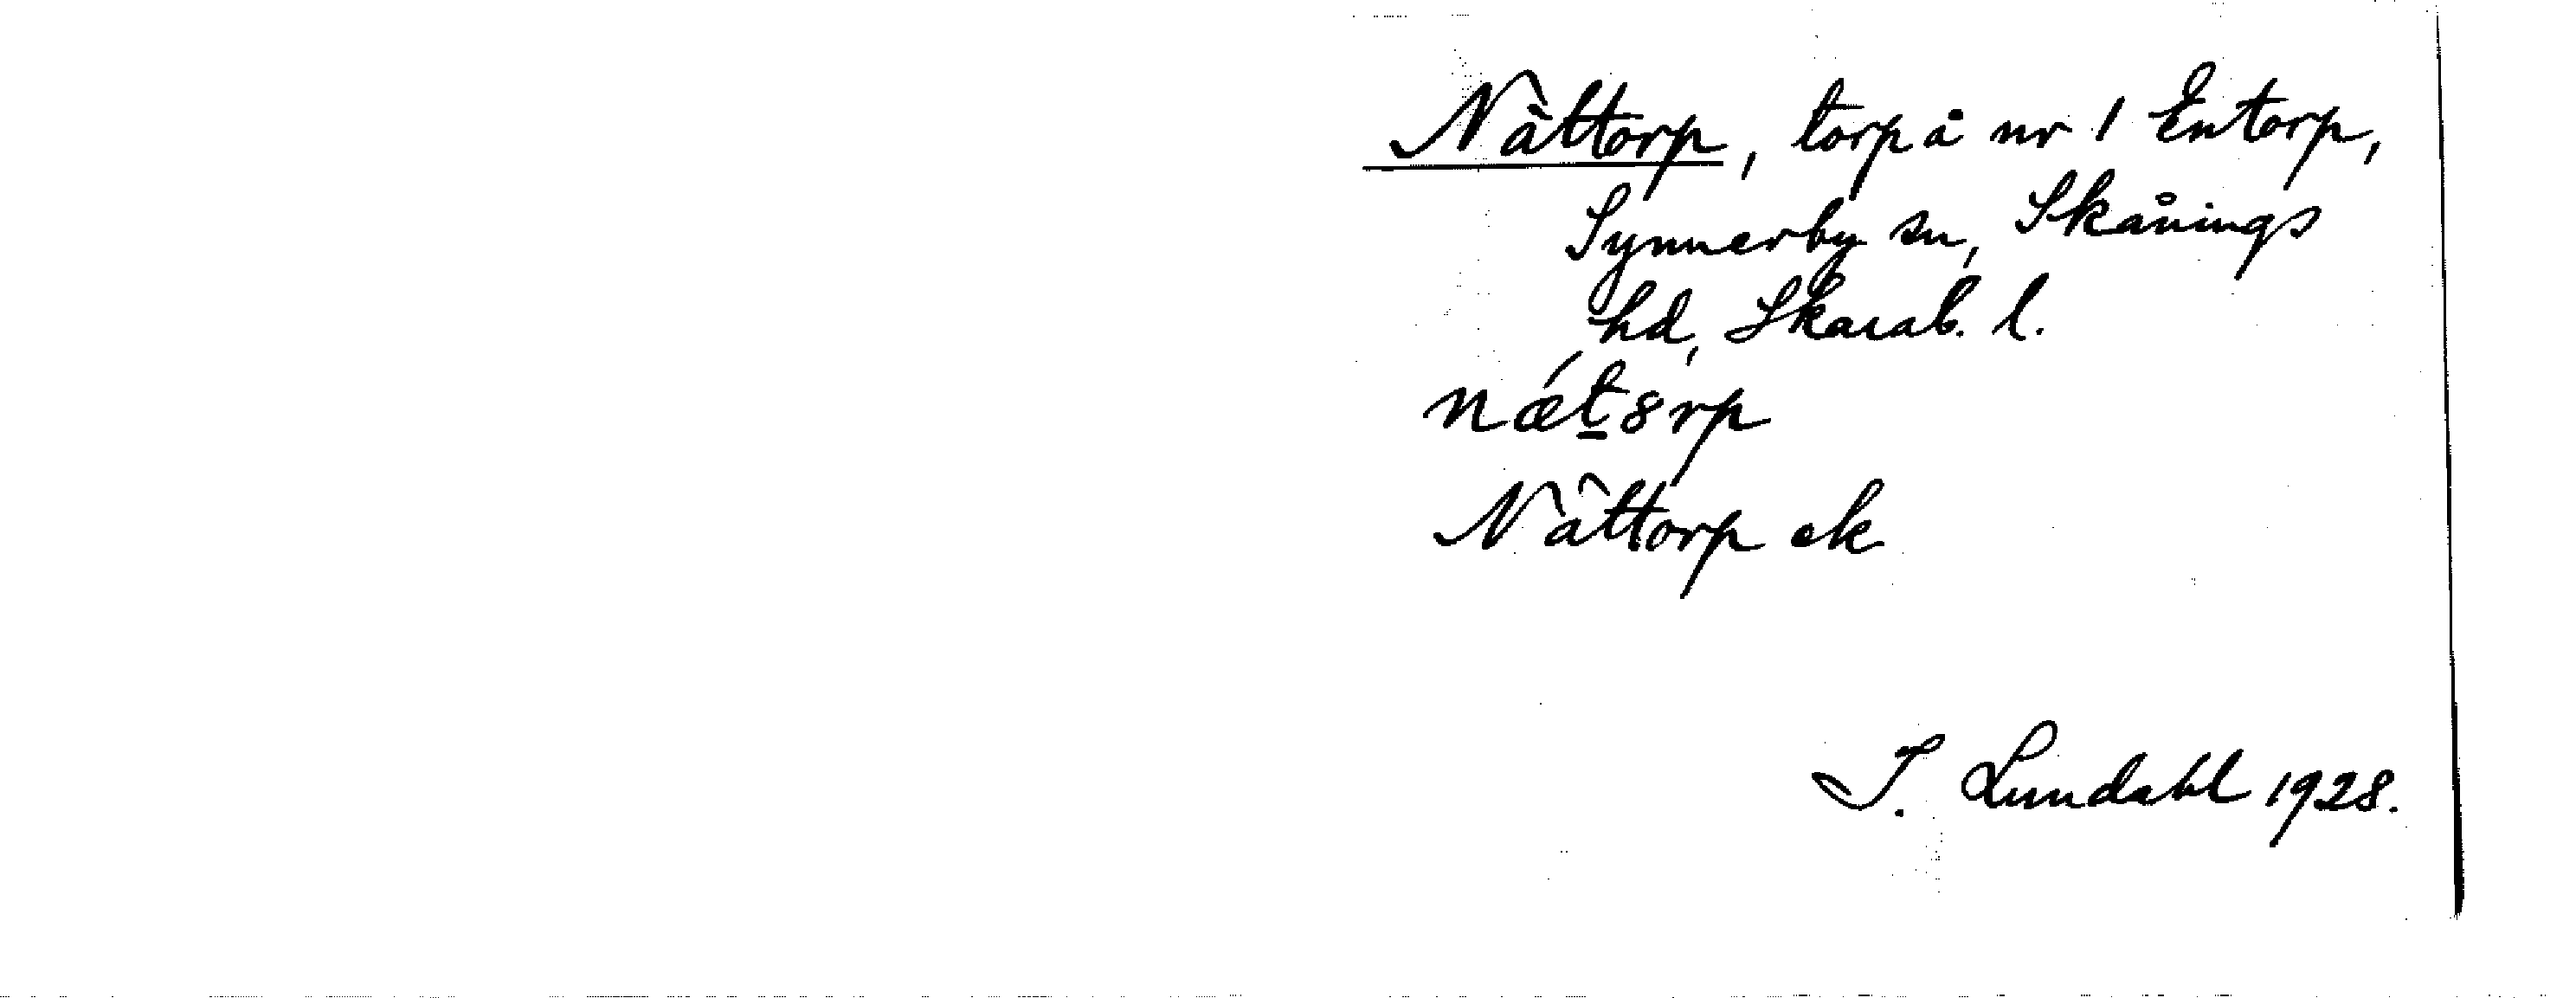 Nättorp, torp å nr 1 Entorp,
Synnerby sn, Skånings
hd, Skarab. l.
næ´t8rp
Nättorp ek
I. Lundahl 1928.